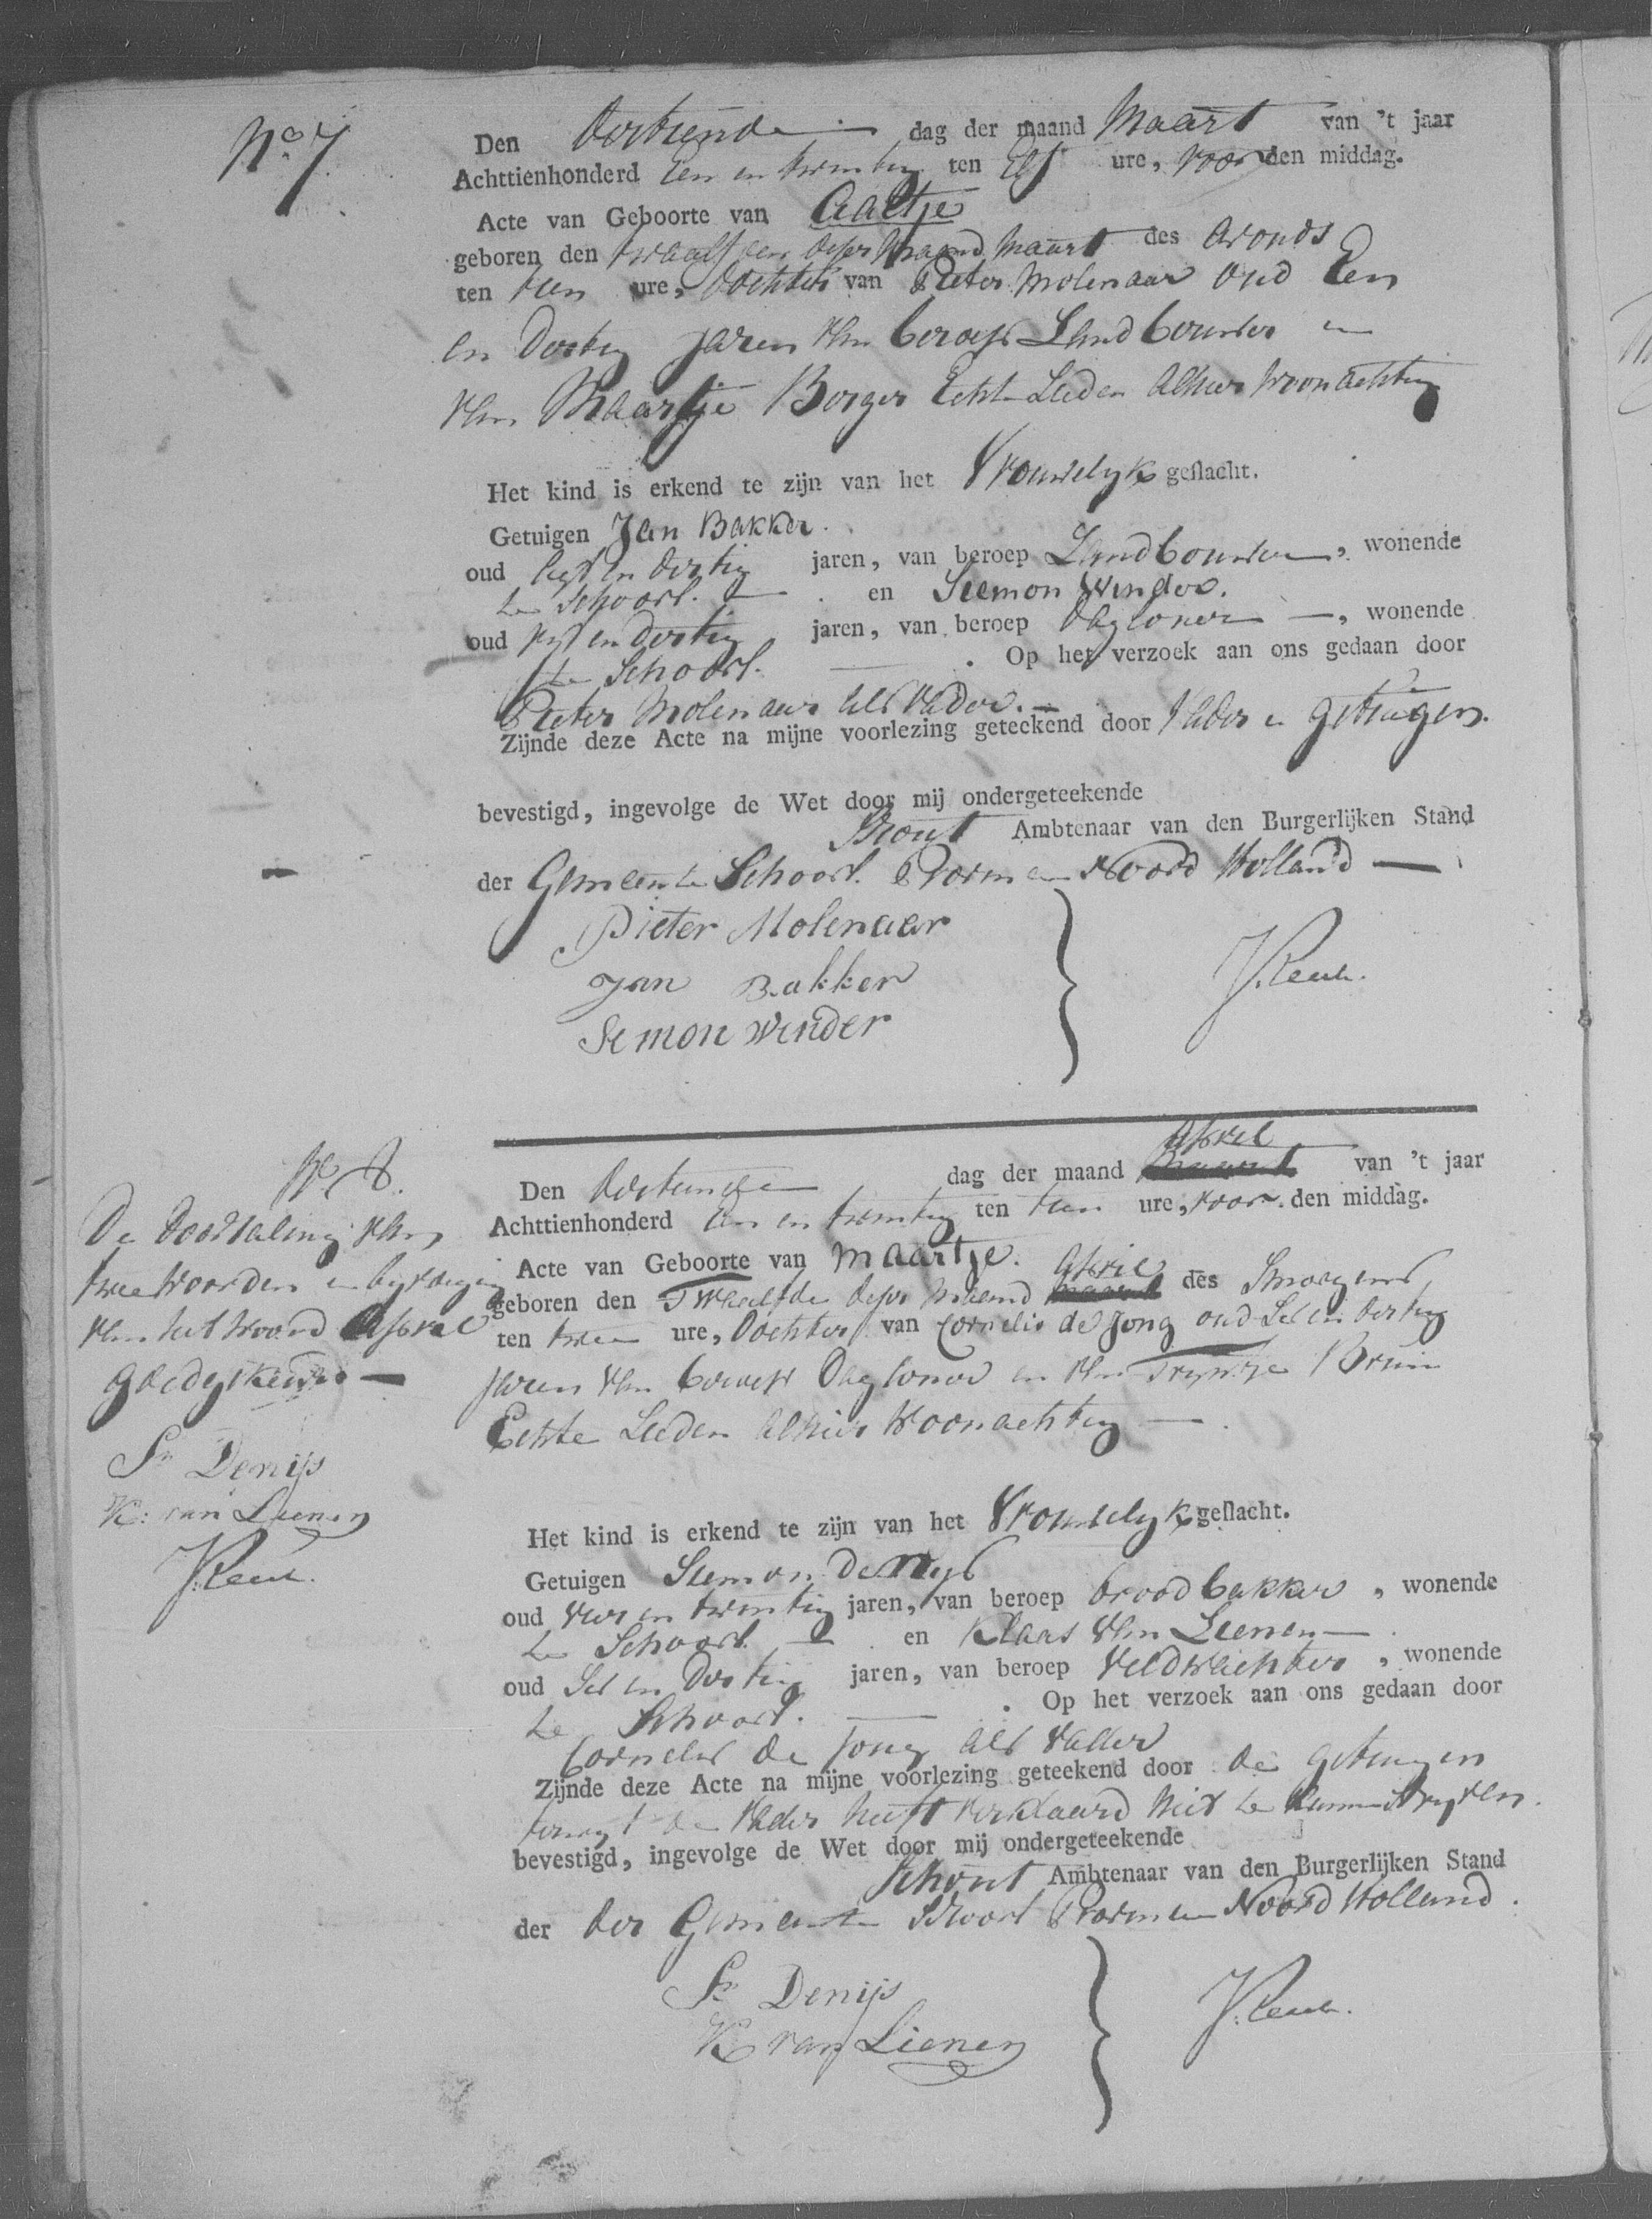 No. 7
Den Dertiende dag der maand Maart van 't jaar
Achttienhonderd Een en twintig ten Elf ure, voor den middag.
Acte van Geboorte van Aaltje
geboren den twaalfden deser maand Maart des avonds
ten tien ure, dochter van Pieter Molenaar oud Een
en Dertig jaren van beroep Landbouwer en
van Maartje Borger Echte Lieden alhier woonachtig
Het kind is erkend te zijn van het Vrouwelyk geslacht.
Getuigen Jan Bakker.
oud en dertig jaren, van beroep Landbouwer, wonende
te Schoorl. en Siemon Winder.
oud vyf en dertig jaren, van beroep Dagloner —, wonende
te Schoorl. — . Op het verzoek aan ons gedaan door
Pieter Molenaar als Vader. —
Zijnde deze Acte na mijne voorlezing geteekend door Vader en getuigen.
bevestigd, ingevolge de Wet door mij ondergeteekende
Schout Ambtenaar van den Burgerlijken Stand
der Gemeente Schoorl. Provincie Noord Holland —
Pieter Molenaar
Jan Bakker
Simon Winder
No. 8.
De doorhaling van
twee woorden en byvoeging
van het woord April
goedgekeurd —
Sn Denijs
K: van Lienen
Den Dertiende dag der maand April van 't jaar
Achttienhonderd Een en twintig ten tien ure, voor den middag.
Acte van Geboorte van Maartje.
geboren den Twaalfde deser maand April des Smorgens
ten twee ure, dochter van Cornelis de Jong oud Ses en dertig
jaren van beroep Dagloner en van Tryntje Bruin
Echte Lieden alhier Woonachtig —
Het kind is erkend te zijn van het Vrouwelyk geslacht.
Getuigen Siemon Denys
oud vier en twintig jaren, van beroep broodbakker, wonende
te Schoorl. — en Klaas van Lienen —
oud Ses en Dertig jaren, van beroep Veldwachter, wonende
te Schoorl. — . Op het verzoek aan ons gedaan door
Cornelis de Jong als Vader
Zijnde deze Acte na mijne voorlezing geteekend door de getuigen
terwyl de Vader heeft verklaard niet te kunnen schryven.
bevestigd, ingevolge de Wet door mij ondergeteekende
Schout Ambtenaar van den Burgerlijken Stand
der der Gemeente Schoorl Provincie Noord Holland.
Sn Denijs
K van Lienen